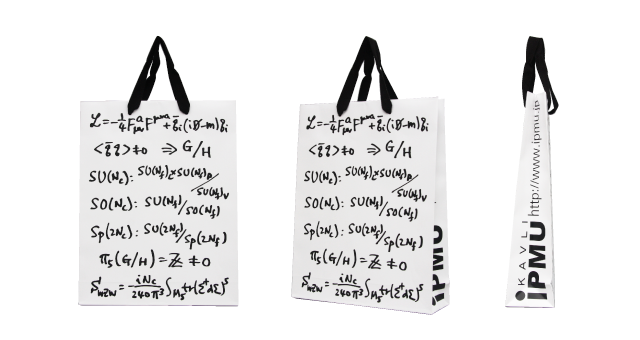 ℒ=-¼FᵃμνFμνa+q̄i(iD̸-m)qi
<q̄q>≠0 ⇒ G/H
SU(Nc): SU(Nf)L×SU(Nf)R/SU(Nf)V
SO(Nc): SU(Nf)/SO(Nf)
Sp(2Nc): SU(2Nf)/Sp(2Nf)
π5(G/H)=ℤ≠0
SWZW=iNc/240π³∫M5 tr(Σ†dΣ)⁵
ℒ=-¼FᵃμνFμνa+q̄i(iD̸-m)qi
<q̄q>≠0 ⇒ G/H
SU(Nc): SU(Nf)L×SU(Nf)R/SU(Nf)V
SO(Nc): SU(Nf)/SO(Nf)
Sp(2Nc): SU(2Nf)/Sp(2Nf)
π5(G/H)=ℤ≠0
SWZW=iNc/240π³∫M5 tr(Σ†dΣ)⁵
IPMU
KAVLI
IPMU http://www.ipmu.jp